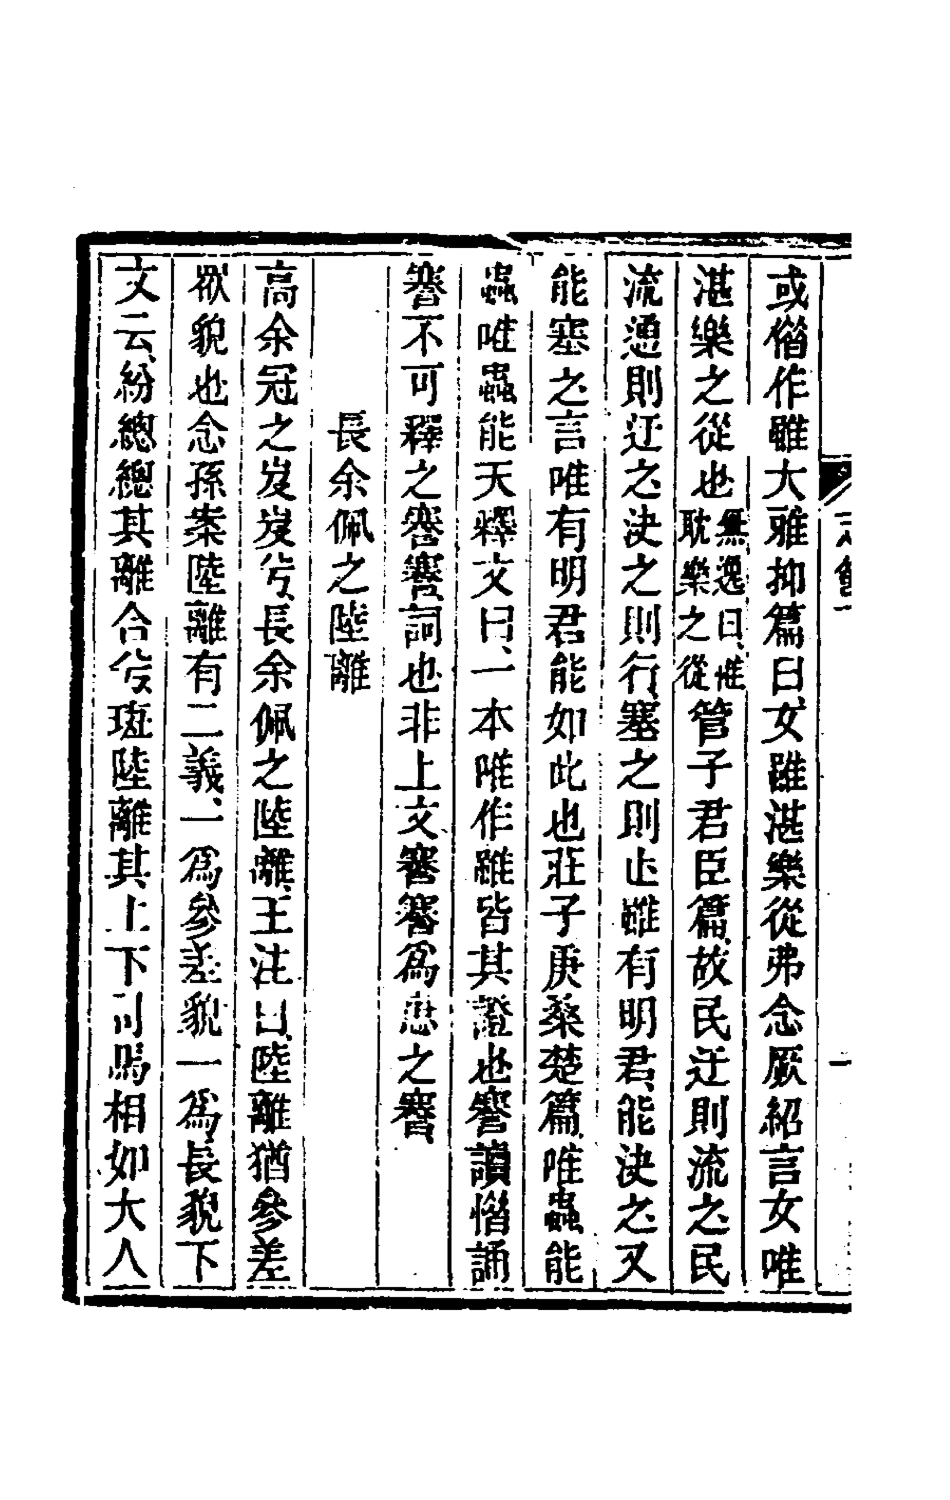 或借作雖大雅抑篇曰女雖湛樂從弗念厥紹言女唯
湛樂之從也無逸曰惟耽樂之從管子君臣篇故民迂則流之民
流通則迂之決之則行塞之則止雖有明君能決之又
能塞之言唯有明君能如此也莊子庚桑楚篇唯蟲能
蟲唯蟲能天釋文曰一本唯作雖皆其證也謇讀憯誦
謇不可釋之謇謇詞也非上文謇謇為患之謇
長余佩之陸離
高余冠之岌岌兮長余佩之陸離王注曰陸離猶參差
欲貌也念孫案陸離有二義一為參差貌一為長貌下
文云紛總總其離合兮斑陸離其上下司馬相如大人